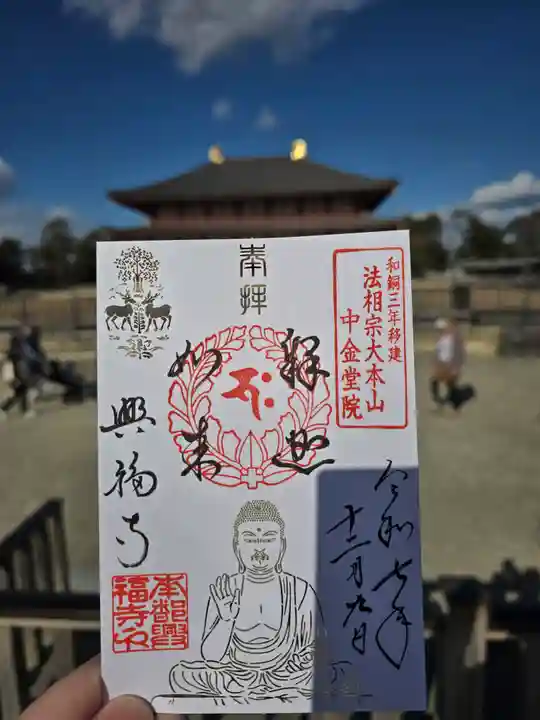 奉拝
和銅三年移建
法相宗大本山
中金堂院
釈迦
如来
興福寺
令和七年
十二月九日